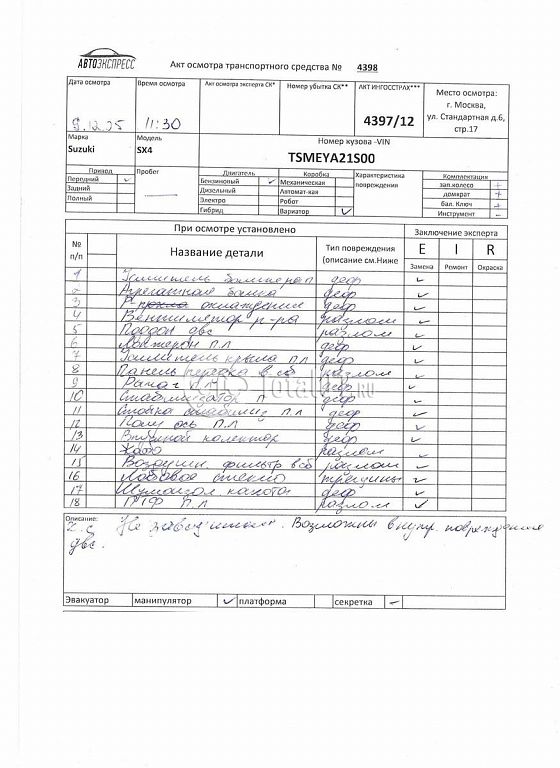 АВТОЭКСПРЕСС
Акт осмотра транспортного средства № 4398
Дата осмотра
Время осмотра
Акт осмотра эксперта СК*
Номер убытка СК**
АКТ ИНГОССТРАХ***
Место осмотра:
г. Москва,
ул. Стандартная д.6,
стр.17
9.12.25
11:30
4397/12
Марка
Модель
Номер кузова -VIN
Suzuki
SX4
TSMEYA21S00
Привод
Пробег
Двигатель
Коробка
Характеристика
повреждения
Комплектация
Передний ✓
Бензиновый ✓
Механическая
зап.колесо +
Задний
Дизельный
Автомат-кая
домкрат +
Полный
Электро
Робот
бал. Ключ +
Гибрид
Вариатор ✓
Инструмент –
При осмотре установлено
Заключение эксперта
№
п/п
Название детали
Тип повреждения
(описание см.Ниже
E I R
Замена Ремонт Окраска
1 Усилитель бампера п деф ✓
2 деф ✓
3 охлаждения деф ✓
4 Вентилятор р-ры разлом ✓
5 Поддон двс разлом ✓
6 Лонжерон П.Л деф ✓
7 Усилитель крыла П Л деф ✓
8 Панель передка в сб разлом ✓
9 Рычаг П.Л деф ✓
10 Стабилизатор П деф ✓
11 Стойка стабилиз П.Л деф ✓
12 ось П.Л деф ✓
13 Впускной колектор деф ✓
14 Жабо разлом ✓
15 фильтр в сб разлом ✓
16 Лобовое стекло трещины ✓
17 Шумоизол капота деф ✓
18 ПТФ П.Л разлом ✓
Totalcar.ru
Описание:
Не заводится. Возможны внутр. повреждения
двс.
Эвакуатор манипулятор ✓ платформа секретка –